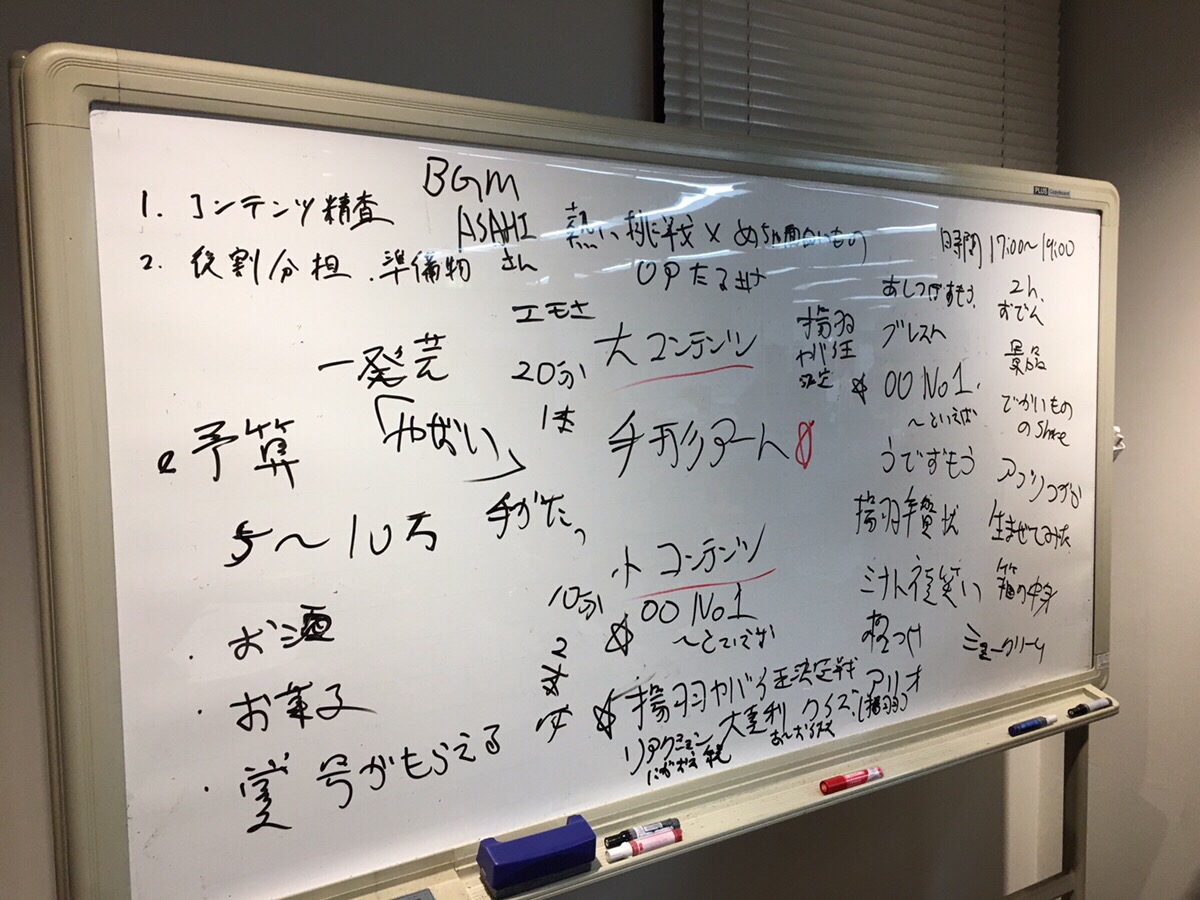 BGM
1. コンテンツ精査
ASAHI
さん
熱い挑戦×めちゃ面白いもの
2. 役割分担、準備物
UPたる
日時間 17:00~19:00
エモさ
一発芸
20分
大コンテンツ
揚羽
ヤバイ王
決定
あしつぼずもう
2h.
おでん
ブレスト
景品
予算
「やばい」
1本
手形アート
☆ 〇〇 No1.
~といえば
でかいもの
のShare
うでずもう
5~10万
手がたっ
小コンテンツ
揚羽年賀状
生ませてみた
10分
☆ 〇〇 No1
~といえば
箱の中身
・お酒
2
本
☆ 揚羽ヤバイ王決定戦
格づけ
シュークリーム
・お菓子
リアクション
大喜利
クイズ
(揚羽)
・賞 号がもらえる
PLUS Copyboard